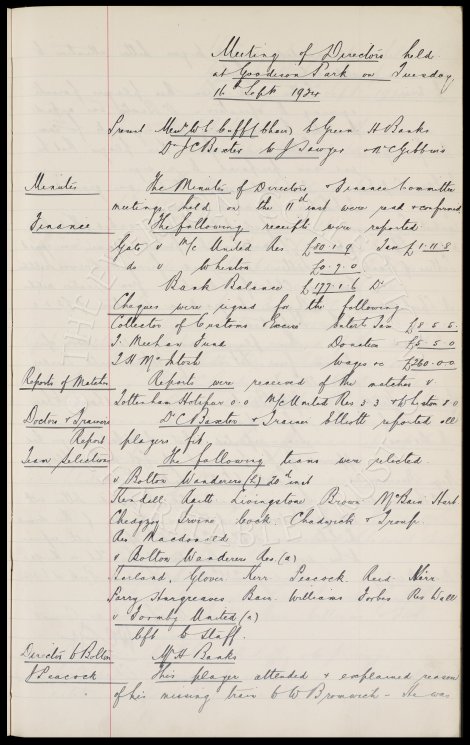 Meeting of Directors held
at Goodison Park on Tuesday
16th Sept 1924
Present Mess W C Cuff (Chair) C Green H Banks
Dr J C Baxter W J Sawyer & A C Gibbins
Minutes The Minutes of Directors & Finance Committee
meetings held on the 11th inst were read & confirmed
Finance The following receipts were reported
Gate v M/c United Res £80.1.9 Tax £1.11.8
do v Whiston £0.9.0
Bank Balance £177.1.6 Dr
Cheques were signed for the following
Collector of Customs & Excise Entert Tax £8 5 5
T. Meehan Fund Donation £5 5 0
T H McIntosh Wages &c £260.0.0
Reports of Matches Reports were received of the matches v
Tottenham Hotspur 0.0 M/c United Res 3 3 & Whiston 8 0
Doctors & Trainers Dr C Baxter & Trainer Elliott reported all
Report players fit
Team Selection The following teams were selected
v Bolton Wanderers (h) 20th inst
Kendall Raitt Livingstone Brown McBain Hart
Chedgzoy Irvine Cock Chadwick & Troup
Res Macdonald
v Bolton Wanderers Res (a)
Harland, Glover Kerr Peacock Reid Weir
Parry Hargreaves Bain Williams Forbes Res Wall
v Formby United (a)
left to Staff.
Director to Bolton Mr H Banks
J Peacock This player attended & explained reason
of his missing train to W Bromwich - He was